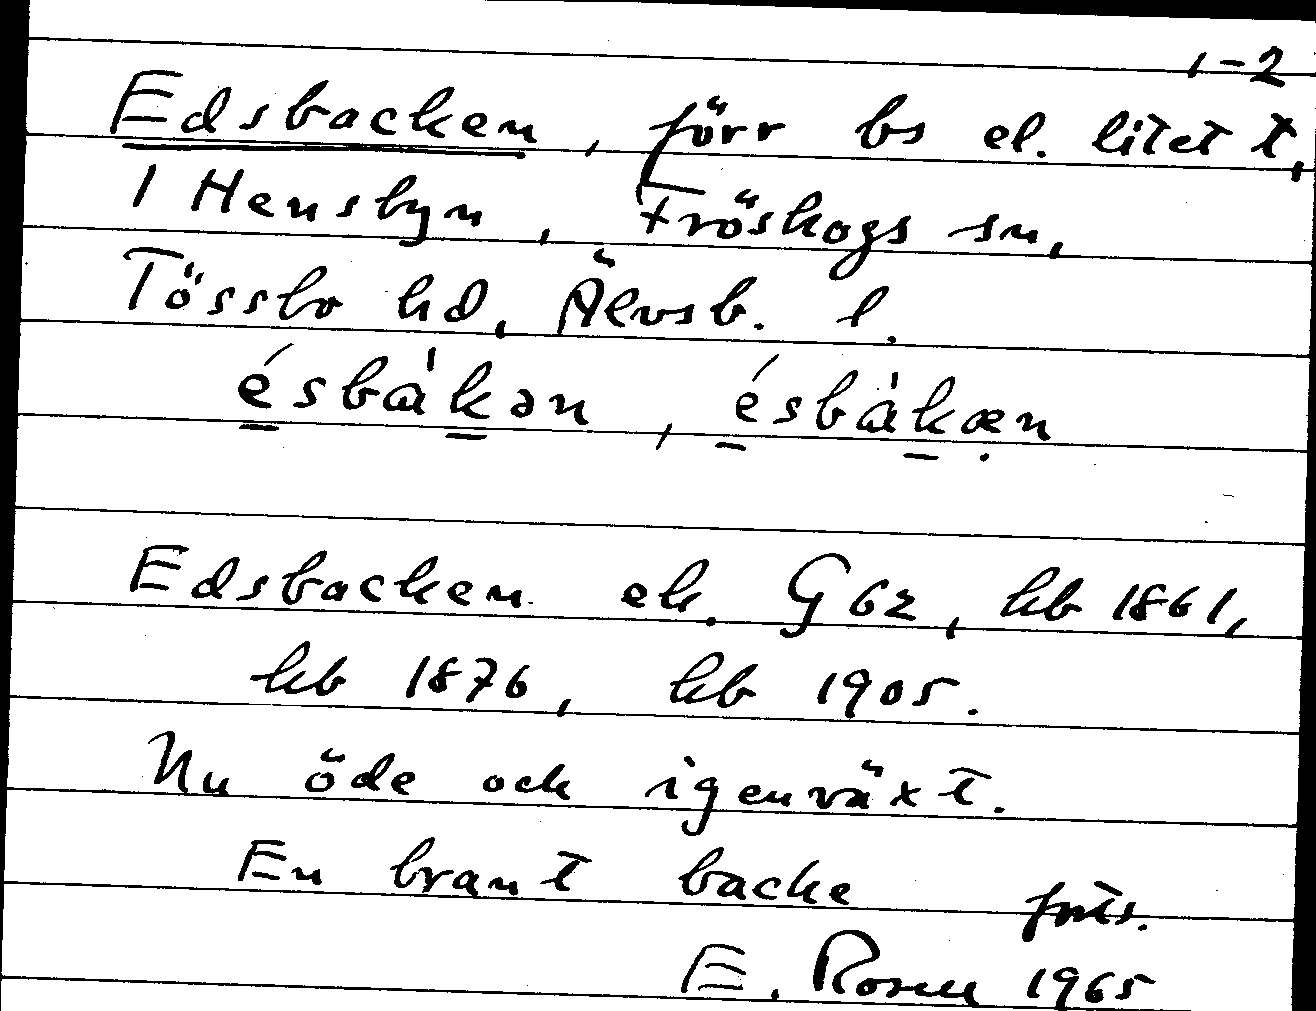 1-2
Edsbacken, förr bs el. litet t,
i Hensbyn, Fröskogs sn,
Tössbo hd, Älvsb. l.
ésbàkən, ésbàkæn
Edsbacken ek. G 62, hb 1861,
hb 1876, hb 1905.
Nu öde och igenväxt.
En brant backe forts.
E. Rosell 1965